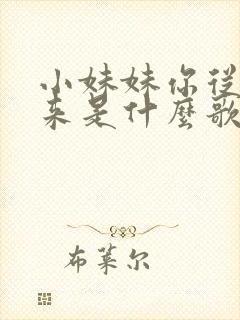 小妹妹你從
来是什麼歌
布莱尔